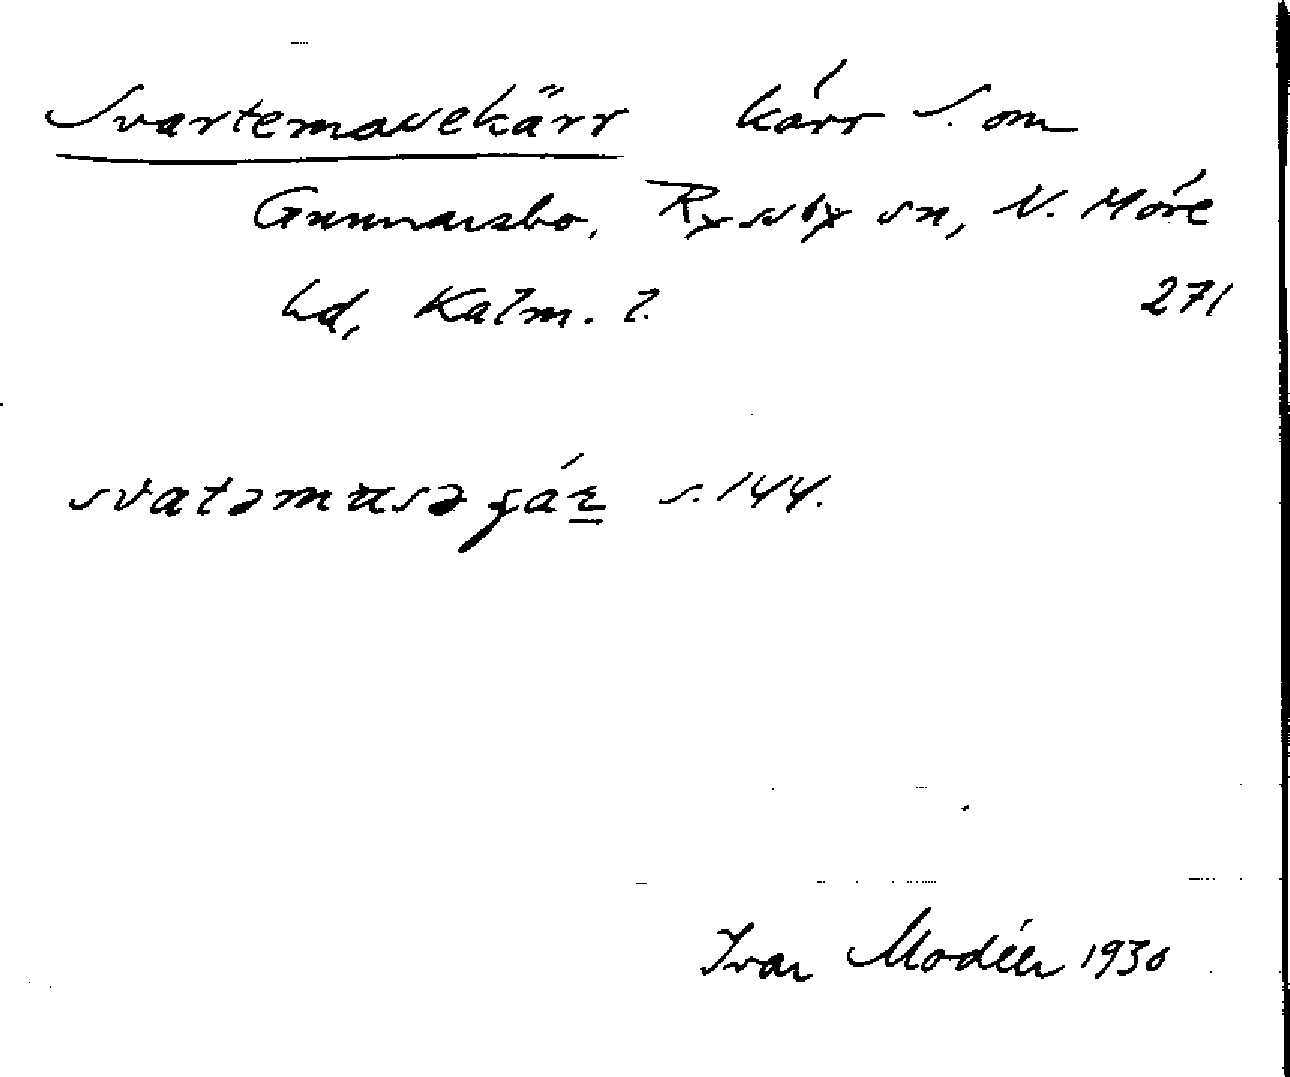 Svartemossekärr kärr S. om
Gunnarsbo, Ryssby sn, N. Möre
hd, Kalm. l. 271
s. 144.
Ivar Modéer 1930